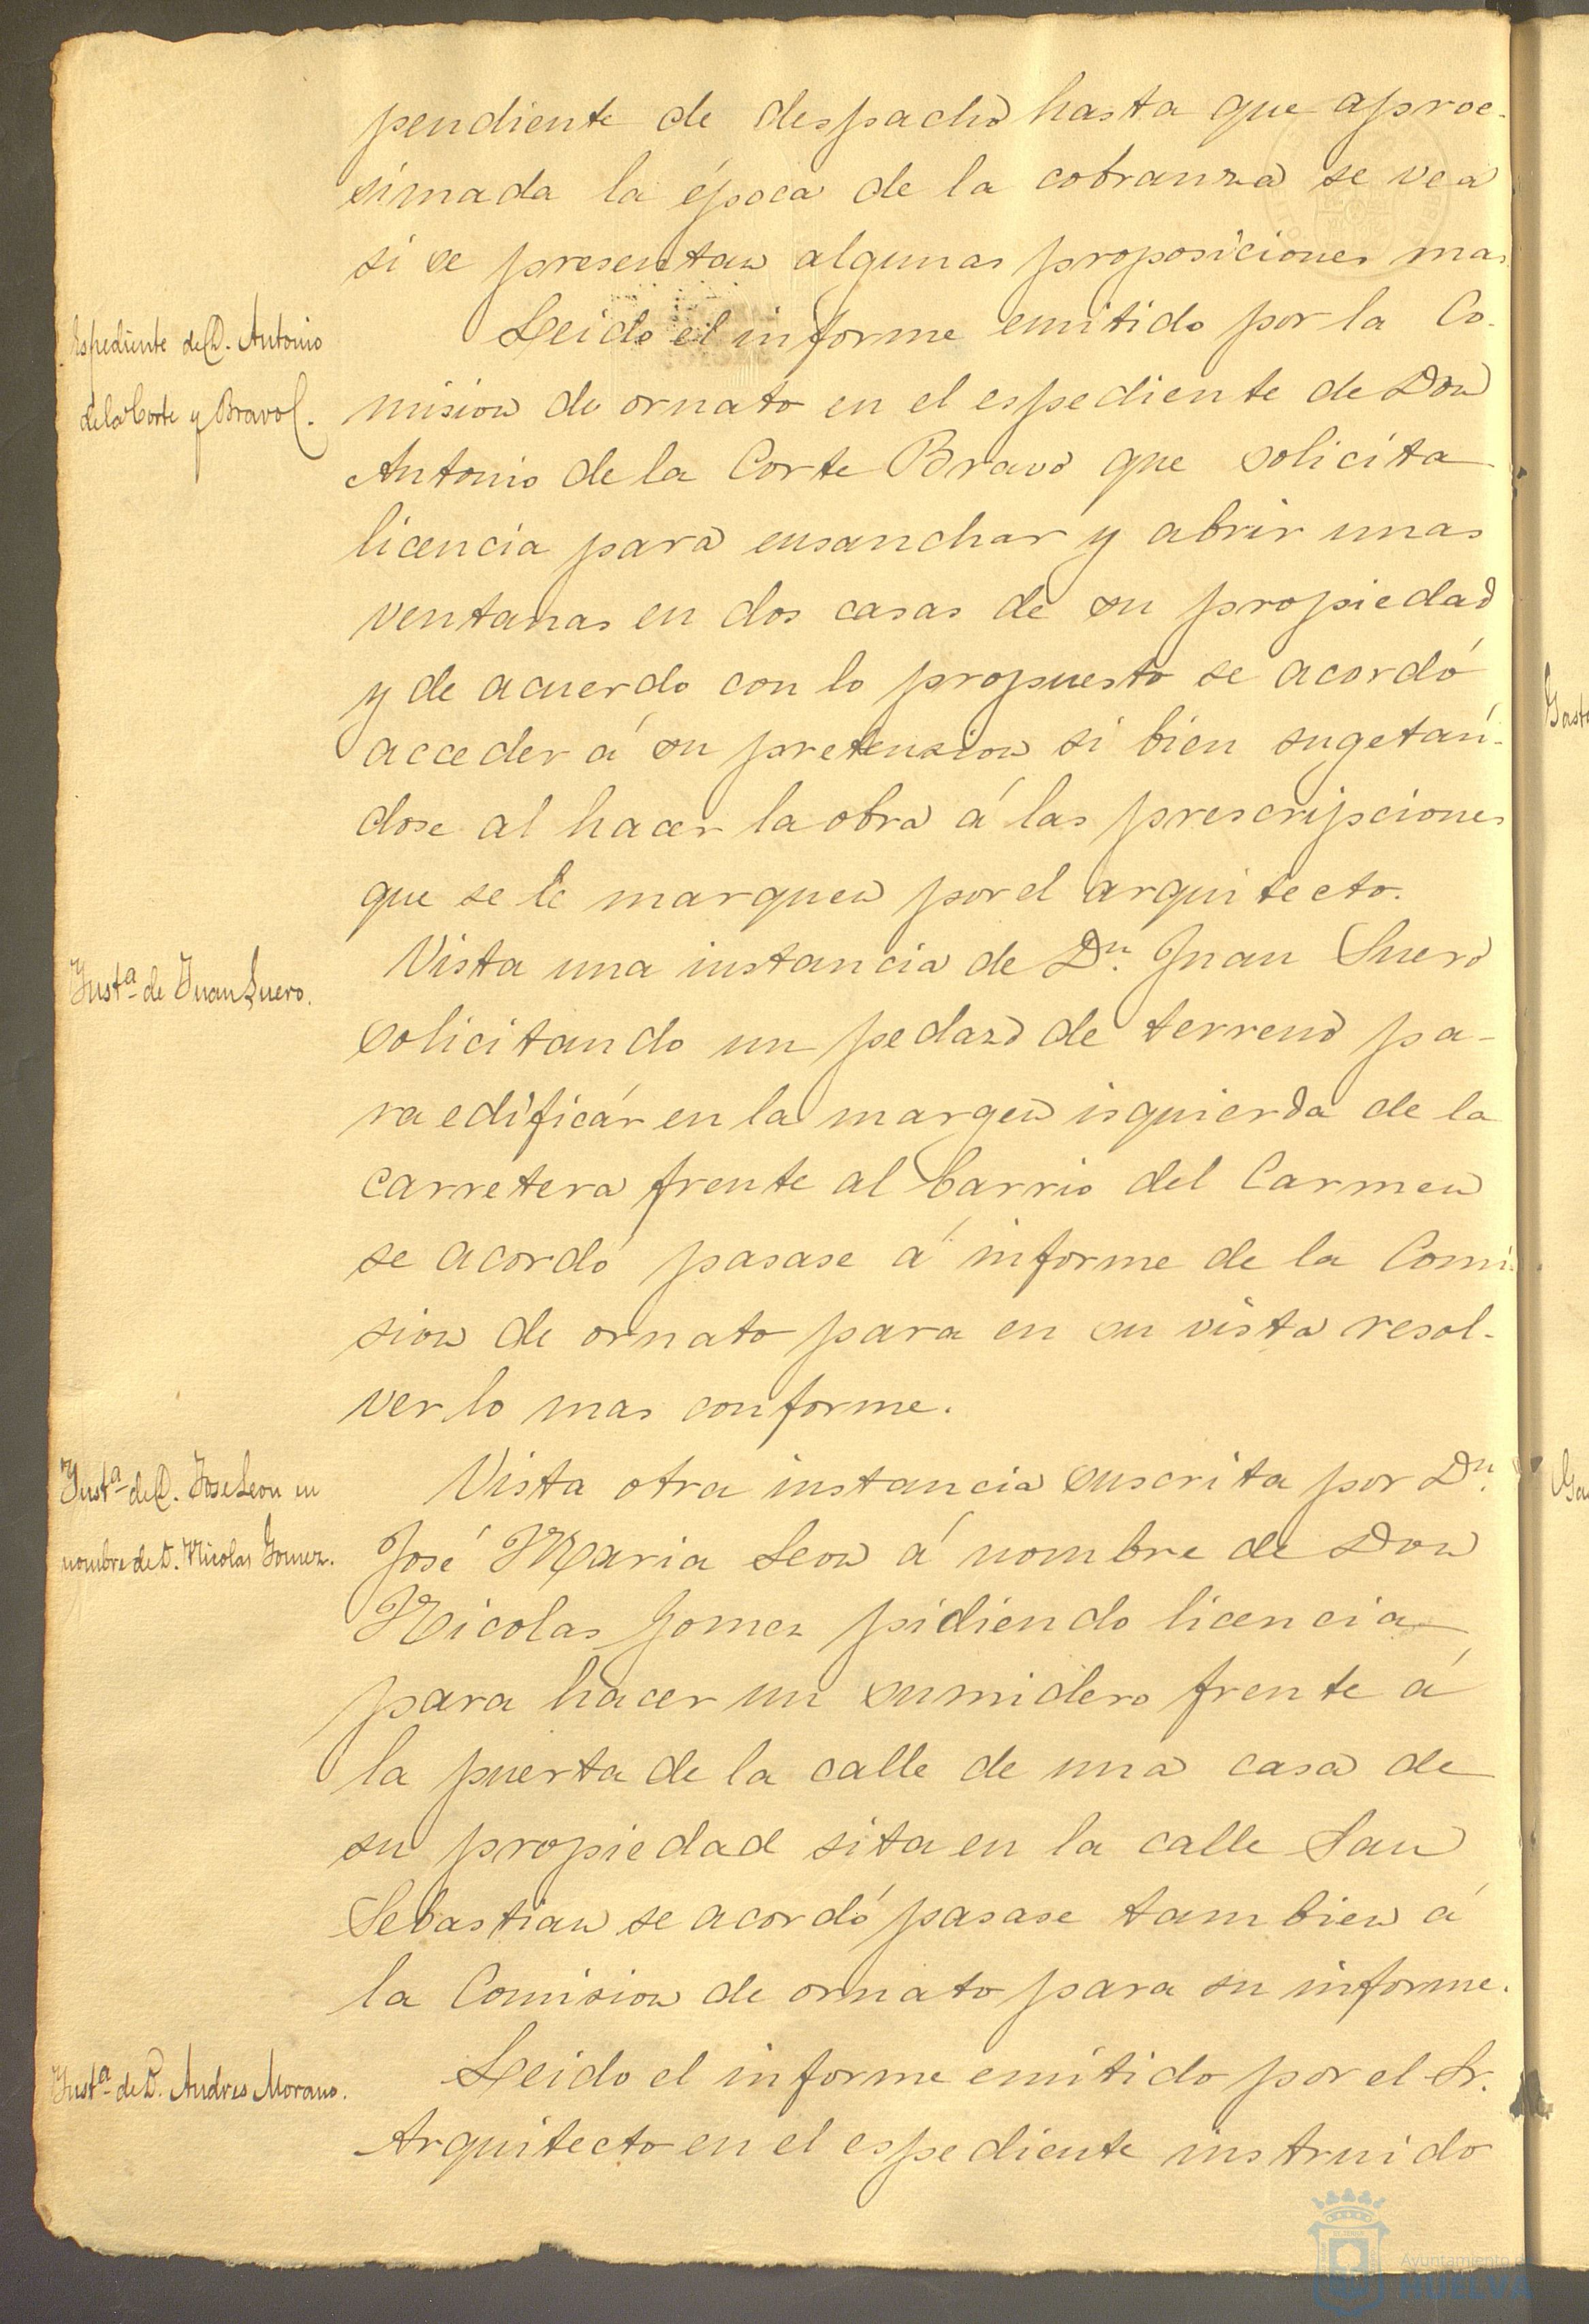 pendiente de despacho hasta que aproc-
simada la época de la cobranza se vea
si se presentan algunas proposiciones mas
Espediente de D. Antonio
de la Corte y Bravo.
Leido el informe emitido por la Co-
mision de ornato en el espediente de Don
Antonio de la Corte Bravo que solicita
licencia para ensanchar y abrir unas
ventanas en dos casas de su propiedad
y de acuerdo con lo propuesto se acordó
acceder á su pretension si bien sugetan-
dose al hacer la obra á las prescripciones
que se le marquen por el arquitecto.
Instª de Juan Suero.
Vista una instancia de Dn. Juan Suero
solicitando un pedazo de terreno pa-
ra edificár en la margen isquierda de la
carretera frente al barrio del Carmen
se acordó pasase á informe de la Comi-
sion de ornato para en su vista resol-
ver lo mas conforme.
Instª de D. Jose Leon en
nombre de D. Nicolas Gomez.
Vista otra instancia suscrita por Dn.
José Maria Leon á nombre de Don
Nicolas Gomez pidiendo licencia
para hacer un sumidero frente á
la puerta de la calle de una casa de
su propiedad sita en la calle San
Sebastian se acordó pasase tambien á
la Comision de ornato para su informe.
Instª de D. Andres Morano.
Leido el informe emitido por el Sr.
Arquitecto en el espediente instruido
Ayuntamiento de
HUELVA